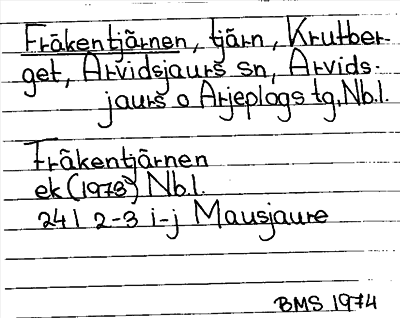 Fräkentjärnen, tjärn, Krutber-
get, Arvidsjaurs sn, Arvids-
jaurs o Arjeplogs tg, Nb.l.
Fräkentjärnen
ek (1978) Nb.l.
24 I 2-3 i-j Mausjaure
BMS 1974